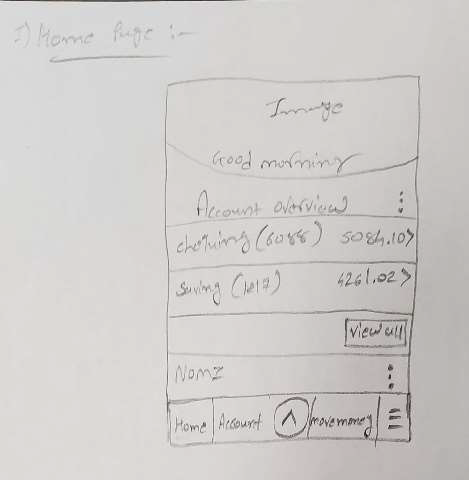 I) Home Page :-
Image
Good morning
Account overview
chequing (6088) 5084.10>
Saving (1217) 4261.02>
View all
Home Account movemoney